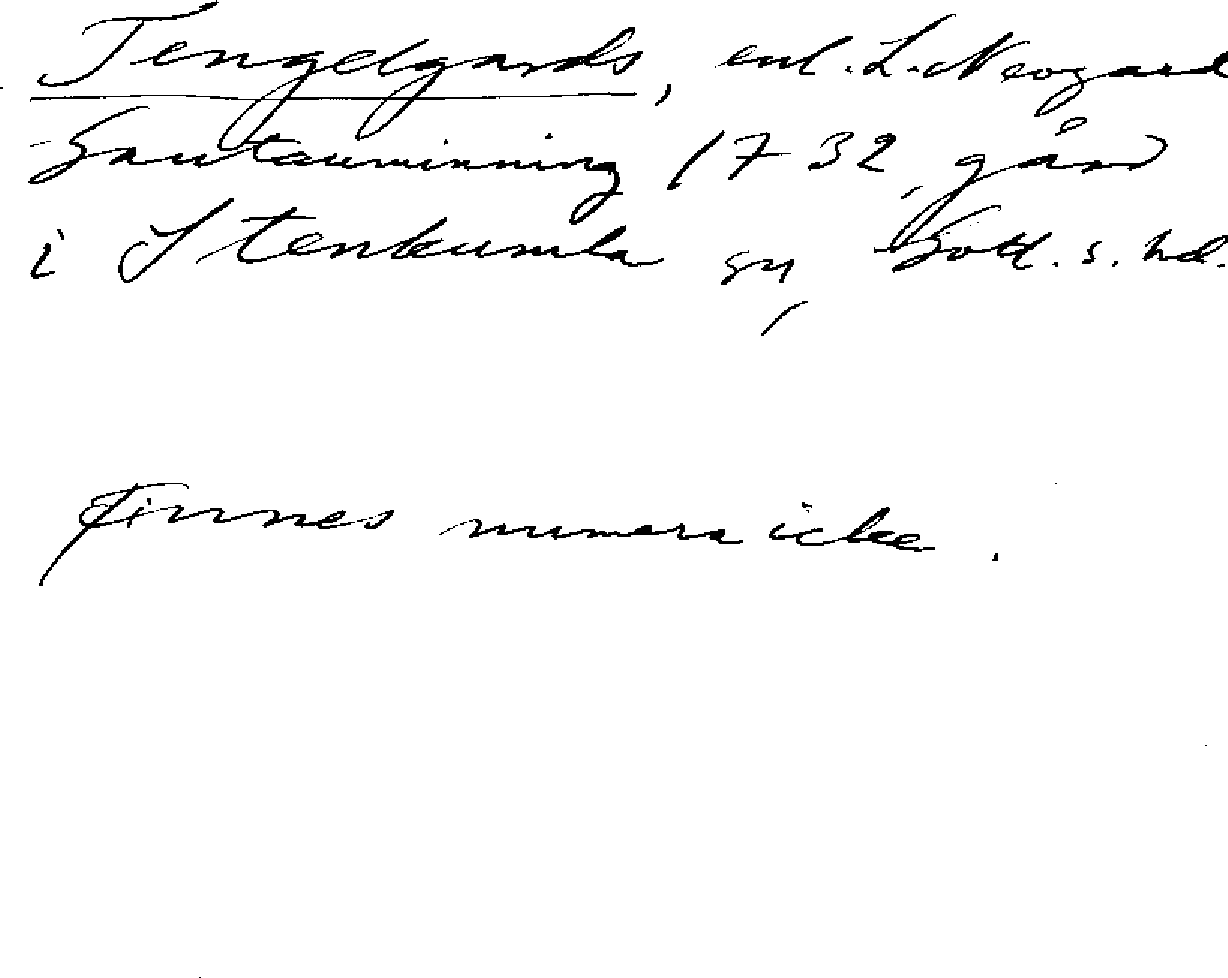 Tengelgards, enl. L. Neogard
Gautauminning 1732, gård
i Stenkumla sn, Gotl. s. hd.
Finnes numera icke.